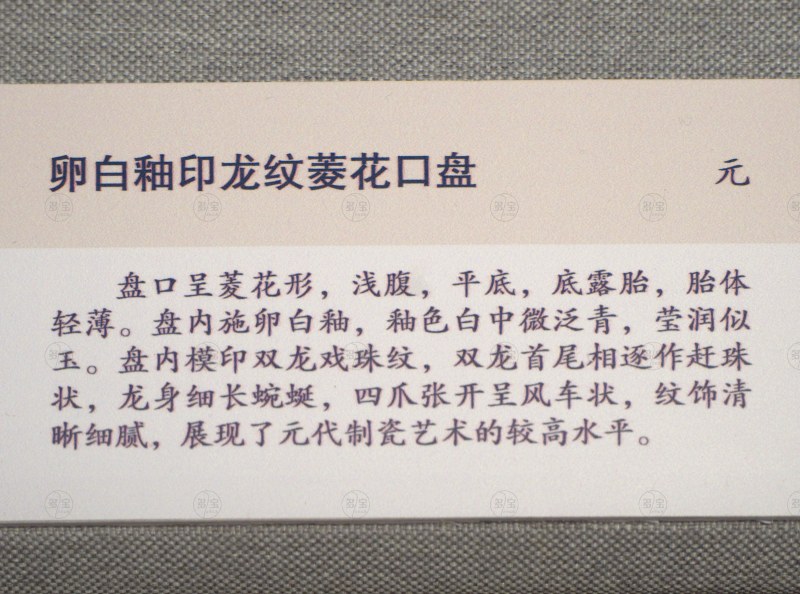 卵白釉印龙纹菱花口盘 元
盘口呈菱花形，浅腹，平底，底露胎，胎体
轻薄。盘内施卵白釉，釉色白中微泛青，莹润似
玉。盘内模印双龙戏珠纹，双龙首尾相逐作赶珠
状，龙身细长蜿蜒，四爪张开呈风车状，纹饰清
晰细腻，展现了元代制瓷艺术的较高水平。